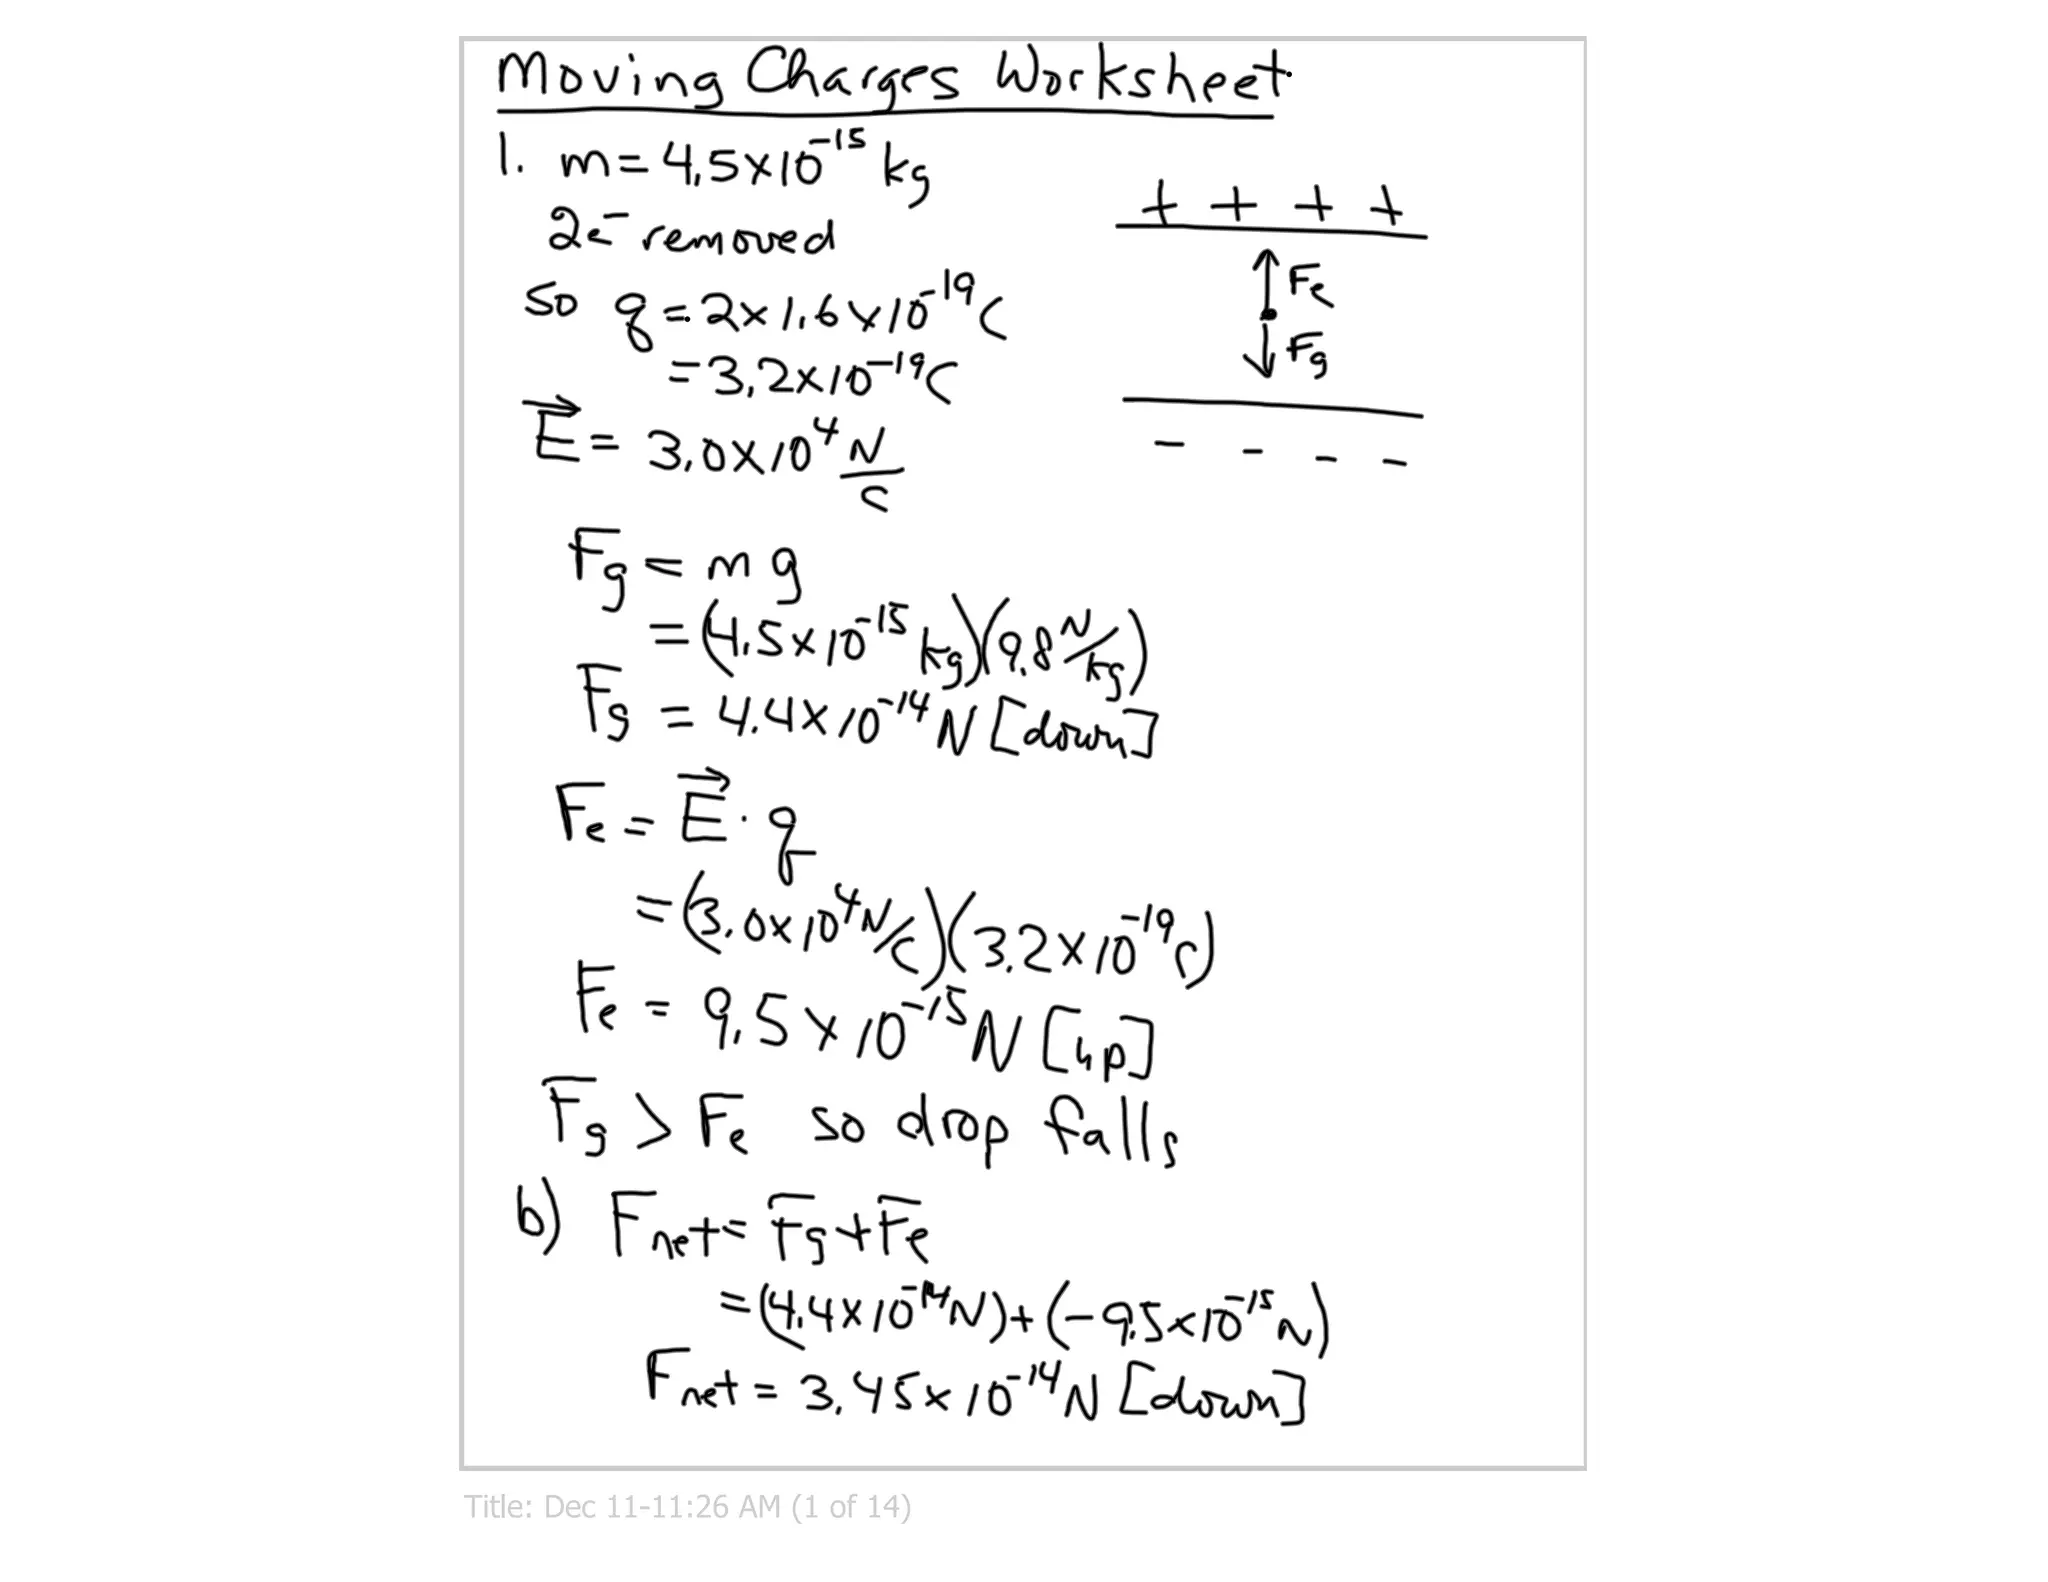 Moving Charges Worksheet
1. m = 4.5x10⁻¹⁵ kg
+ + + +
2e⁻ removed
Fe
so q = 2x1.6x10⁻¹⁹C
Fg
= 3.2x10⁻¹⁹C
E⃗ = 3.0x10⁴ N/C
- - - -
Fg = mg
= (4.5x10⁻¹⁵ kg)(9.8 N/kg)
Fg = 4.4x10⁻¹⁴ N [down]
Fe = E⃗ · q
= (3.0x10⁴ N/C)(3.2x10⁻¹⁹C)
Fe = 9.5x10⁻¹⁵ N [up]
Fg > Fe so drop falls
b) Fnet = Fg + Fe
= (4.4x10⁻¹⁴N) + (-9.5x10⁻¹⁵N)
Fnet = 3.45x10⁻¹⁴N [down]
Title: Dec 11-11:26 AM (1 of 14)